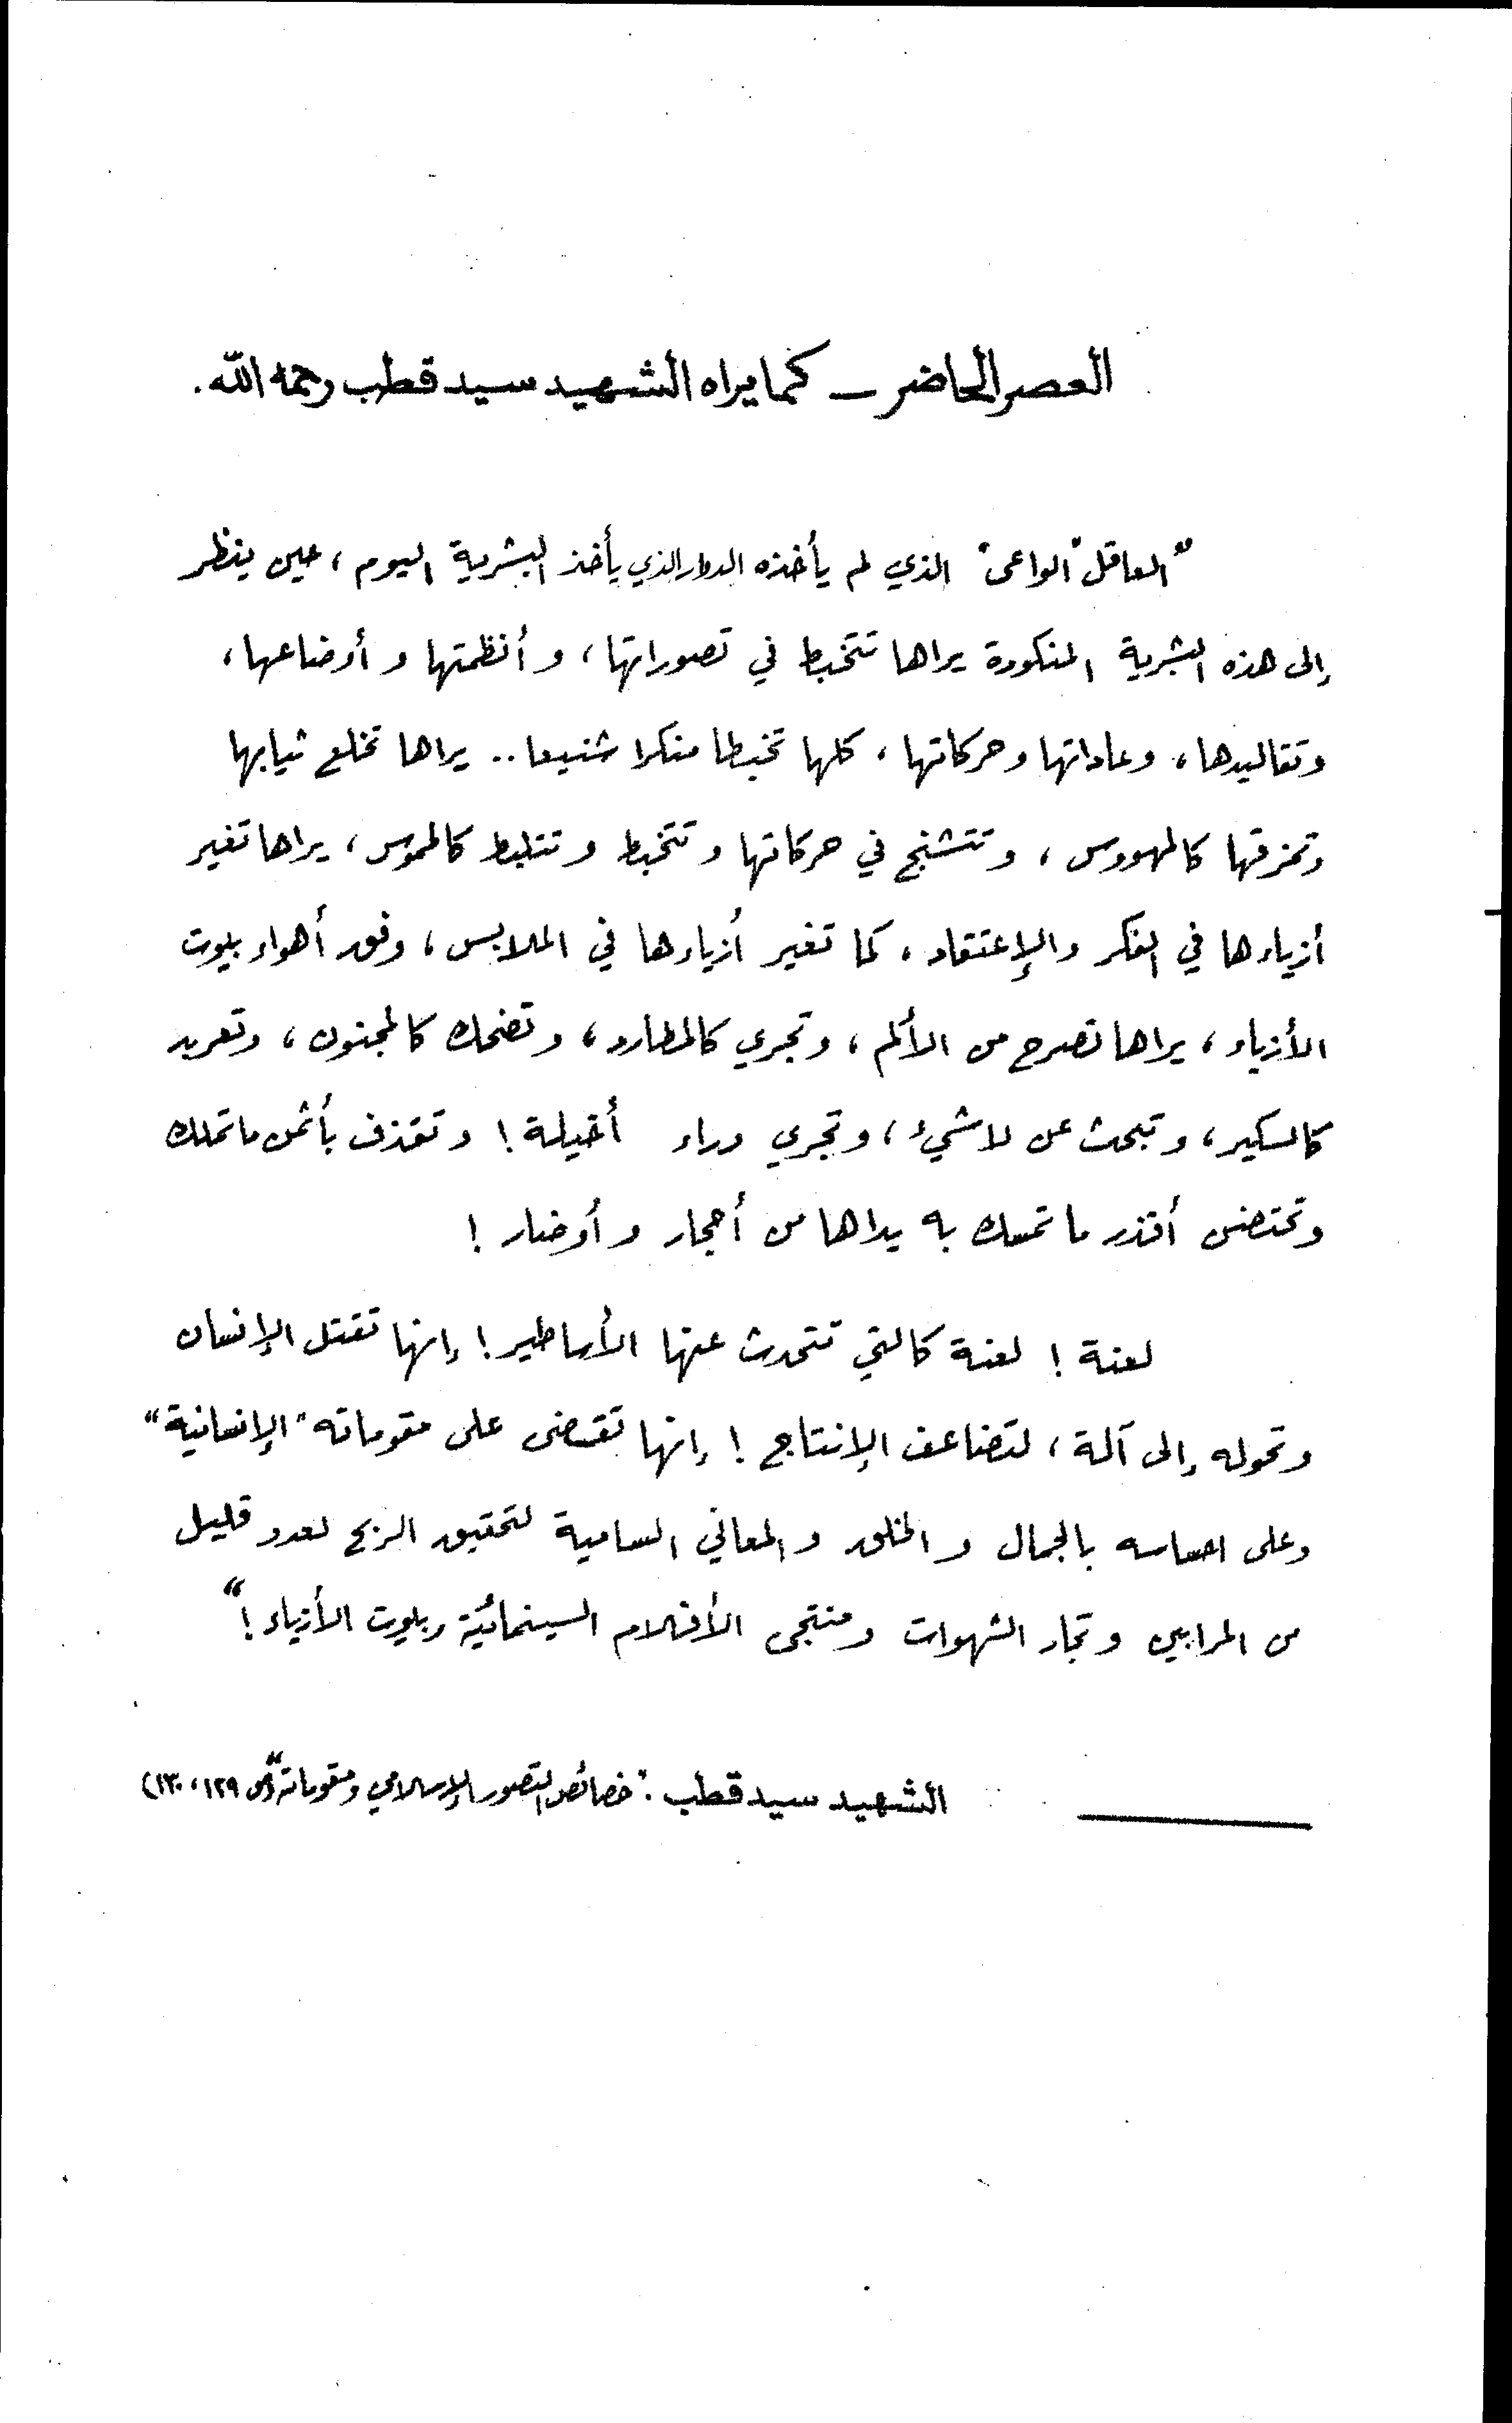 العصر الحاضر - كما يراه الشهيد سيد قطب رحمه الله.
"العاقل "الواعى" الذي لم يأخذه الدوار الذي يأخذ البشرية اليوم، حين ينظر
إلى هذه البشرية المنكودة يراها تتخبط في تصوراتها، وأنظمتها وأوضاعها،
وتقاليدها، وعاداتها وحركاتها، كلها تخبطا منكرا شنيعا.. يراها تخلع ثيابها
وتمزقها كالمهووس، وتتشنج في حركاتها وتتخبط وتتلبط كالممسوس، يراها تغير
أزياءها في الفكر والإعتقاد، كما تغير أزياءها في الملابس، وفق أهواء بيوت
الأزياء، يراها تصرخ من الألم، وتجري كالمطارد، وتضحك كالمجنون، وتعربد
كالسكير، وتبحث عن لا شيء، وتجري وراء أخيلة! وتقذف بأثمن ما تملك
وتحتضن أقذر ما تمسك به يداها من أحجار وأوضار!
لعنة! لعنة كالتي تتحدث عنها الأساطير! إنها تقتل الإنسان
وتحوله إلى آلة، لتضاعف الإنتاج! إنها تقضى على مقوماته "الإنسانية"
وعلى احساسه بالجمال والخلق والمعاني السامية لتحقيق الربح لعدد قليل
من المرابين وتجار الشهوات ومنتجى الأفلام السينمائية وبيوت الأزياء!"
الشهيد سيد قطب: "خصائص التصور الإسلامي ومقوماته" (ص ١٢٩، ١٣٠)